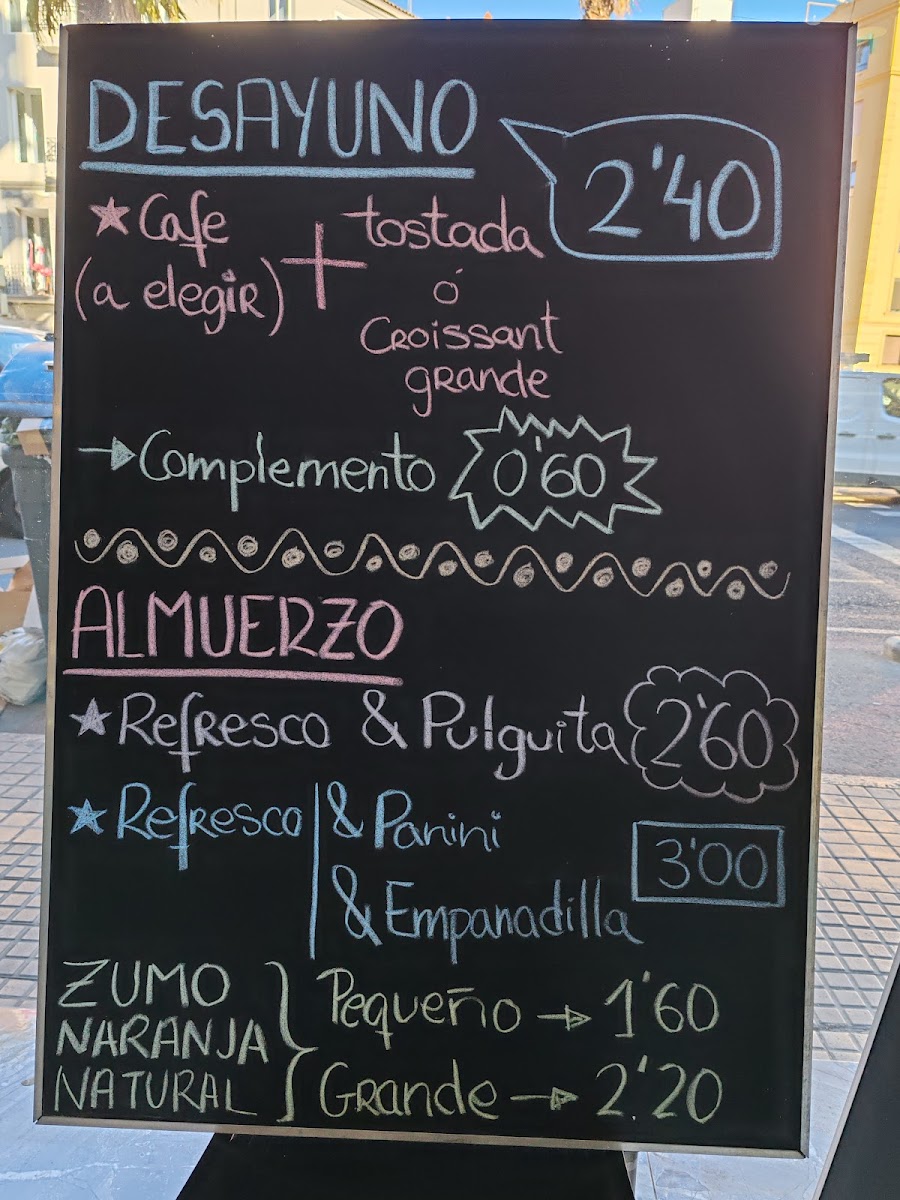 DESAYUNO 2'40
★ Cafe + tostada
(a elegir) ó
Croissant
grande
→ Complemento 0'60
ALMUERZO
★ Refresco & Pulguita 2'60
★ Refresco & Panini 3'00
& Empanadilla
ZUMO
NARANJA
NATURAL
Pequeño → 1'60
Grande → 2'20